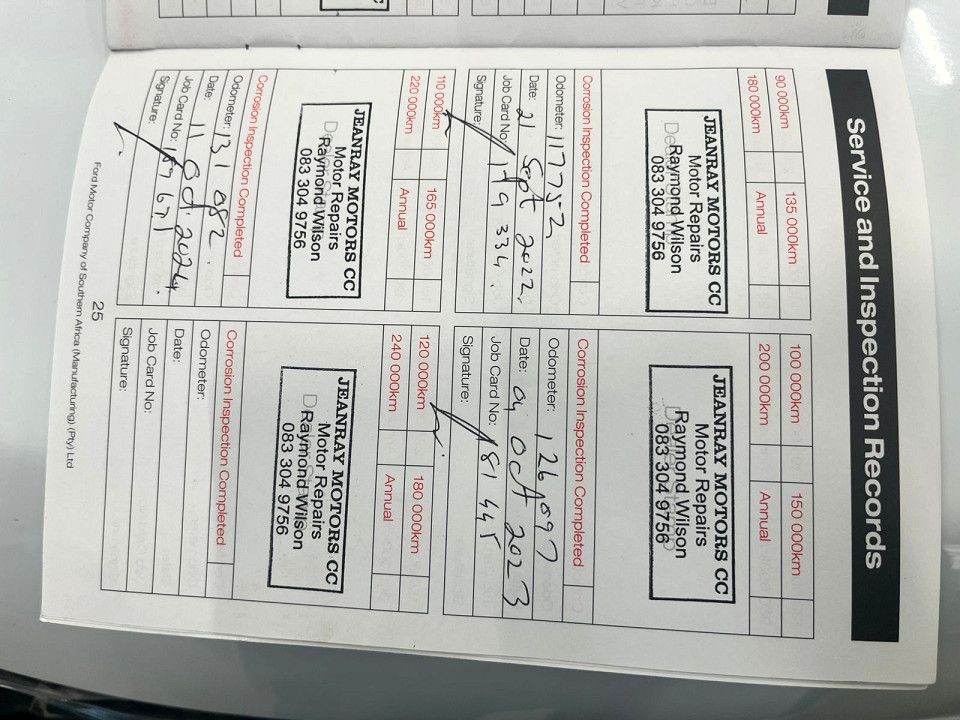 Service and Inspection Records
90 000km
135 000km
180 000km
Annual
JEANRAY MOTORS CC
Motor Repairs
Raymond Wilson
083 304 9756
Corrosion Inspection Completed
Odometer: 117752
Date: 21 Sept 2022.
Job Card No:
Signature:
100 000km
150 000km
200 000km
Annual
JEANRAY MOTORS CC
Motor Repairs
Raymond Wilson
083 304 9756
Corrosion Inspection Completed
Odometer: 126 097
Date: 04 Oct 2023
Job Card No: 181 445
Signature:
110 000km
165 000km
220 000km
Annual
JEANRAY MOTORS CC
Motor Repairs
Raymond Wilson
083 304 9756
Corrosion Inspection Completed
Odometer: 131 082.
Date: 11 Oct. 2024.
Job Card No:
Signature:
120 000km
180 000km
240 000km
Annual
JEANRAY MOTORS CC
Motor Repairs
Raymond Wilson
083 304 9756
Corrosion Inspection Completed
Odometer:
Date:
Job Card No:
Signature:
25
Ford Motor Company of Southern Africa (Manufacturing) (Pty) Ltd